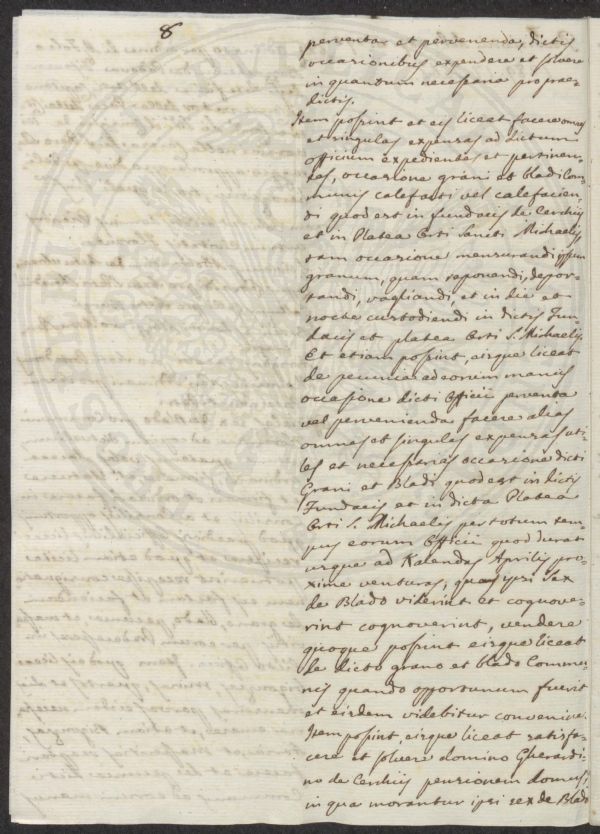 8
perventas et pervenendas, dictis
occasionibus expendere et solvere
in quantum necessaria proprae=
dictis.
Item possint et eis liceat facere omnes
et singulas expensas ad dictum
officium expedientes et pertinen=
tes, occasione grani et bladi Com=
munis calefacti vel calefacien=
di quod est in fundacis de Cerchiis
et in Platea Orti Sancti Michaelis,
tam occasione mensurandi ipsum
granum, quam reponendi, depor=
tandi, vagliandi, et in die et
nocte custodiendi in dictis Fun=
dacis et platea Orti S. Michaelis.
Et etiam possint, eisque liceat
de pecunia ad eorum manus
occasione dicti Officii perventa
vel pervenienda facere alias
omnes et singulas expensas uti=
les et necessarias occasione dicti
Grani et Bladi quod est in dictis
Fundacis et in dicta Platea
Orti S. Michaelis per totum tem=
pus eorum Officii quod durat
usque ad Kalendas Aprilis pro=
xime venturas, ipsi Sex
de Blado viderint et cognove=
rint cognoverint, vendere
quoque possint eisque liceat
de dicto grano et blado Commu=
nis quando opportunum fuerit
et eisdem videbitur convenire.
Item possint, eisque liceat satisfa=
cere et solvere domino Gherardi=
no de Cerchiis pensionem domus,
in qua morantur ipsi sex de Blado